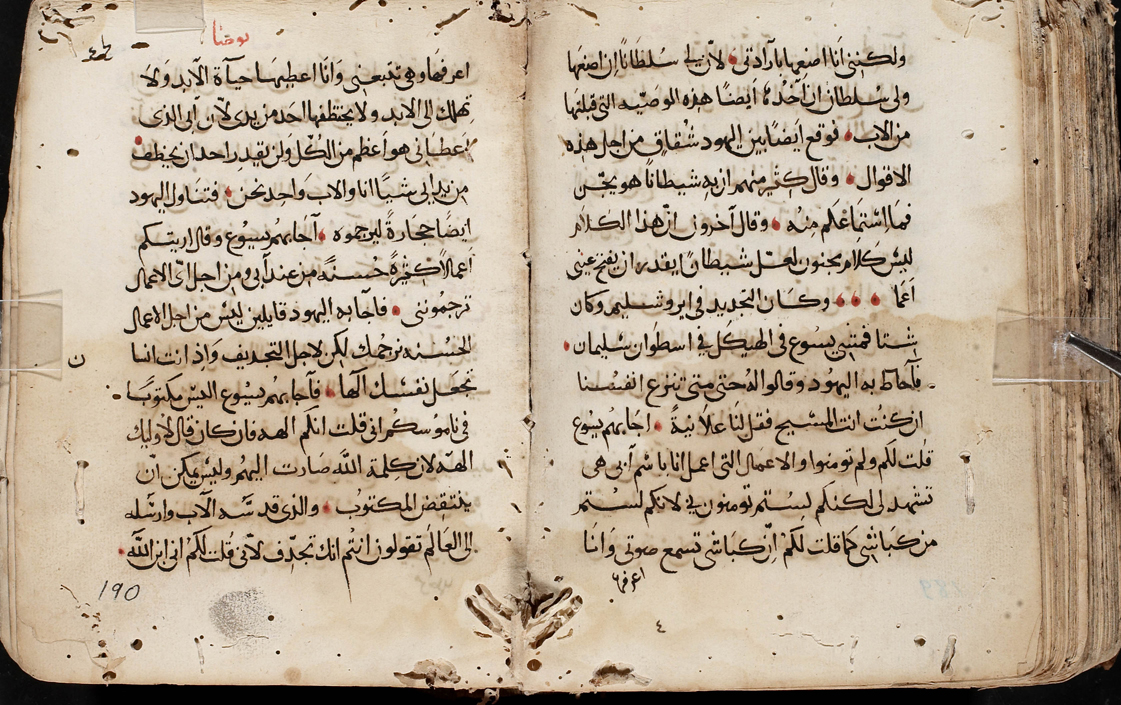 ولكنني انا اضعها بارادتي لان لي سلطانا ان اضعها
ولي سلطان ان آخذها ايضا هذه الوصيه التي قبلتها
من الاب فوقع ايضا بين اليهود شقاق من اجل هذه
الاقوال وقال كثير منهم ان به شيطانا هو يجن
فما استماعكم منه وقال آخرون ان هذا الكلام
ليس كلام مجنون لعل شيطانا يقدر ان يفتح عيني
اعما وكان التجديد في ايروشليم وكان
شتا فمشي يسوع في الهيكل في اسطوان سليمان
فآحاط به اليهود وقالوا له حتى متى تنزع انفسنا
ان كنت انت المسيح فقل لنا علانية اجابهم يسوع
قلت لكم ولم تومنوا والاعمال التي اعمل انا باسم ابي هي
تشهد لي لكنكم لستم تومنون بي لانكم لستم
من كباشي كما قلت لكم ان كباشي تسمع صوتي وانا
اعرفها
٤
يوحنا
اعرفها وهي تتبعني وانا اعطيها حياة الابد ولا
تهلك الى الابد ولا يختطفها احد من يدي لان ابي الذي
اعطاني هو اعظم من الكل ولن يقدر احد ان يخطف
من يد ابي شيا انا والاب واحد نحن فتناول اليهود
ايضا حجارة ليرجموه آجابهم يسوع وقال اريتكم
اعمالا كثيرة حسنة من عند ابي ومن اجل اي الاعمال
ترجمونني فاجابه اليهود قايلين ليس من اجل الاعمال
الحسنه نرجمك لكن لاجل التجديف واذ انت انسا
ن
تجعل نفسك الها فآجابهم يسوع اليس مكتوبا
في ناموسكم اني قلت انكم الهه فان كان قال لاوليك
الهه لان كلمة الله صارت اليهم وليس يمكن ان
ينتقض المكتوب والذي قدسه الاب وارسله
الى العالم تقولون انتم انك تجدف لاني قلت لكم اني ابن الله
190